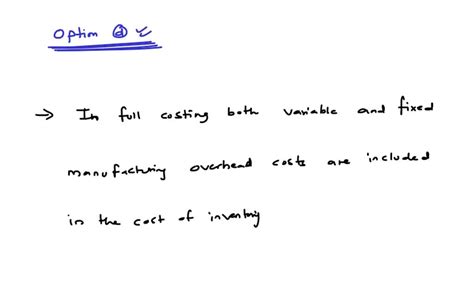 Option ⓓ ✓
→ In full costing both variable and fixed
manufacturing overhead costs are included
in the cost of inventory